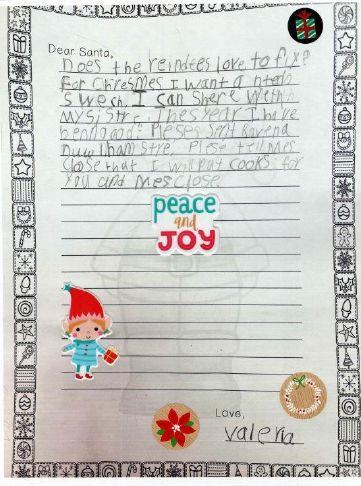 Dear Santa,
Does the reindees love to fly?
For Chresmes I want a ntendo
Swech. I can shere with
my sistr. Thes year I have
ben good. Plese
Plese tell mes
close that I will put cooks for
you and mes close
peace
and
JOY
Love,
Valeria